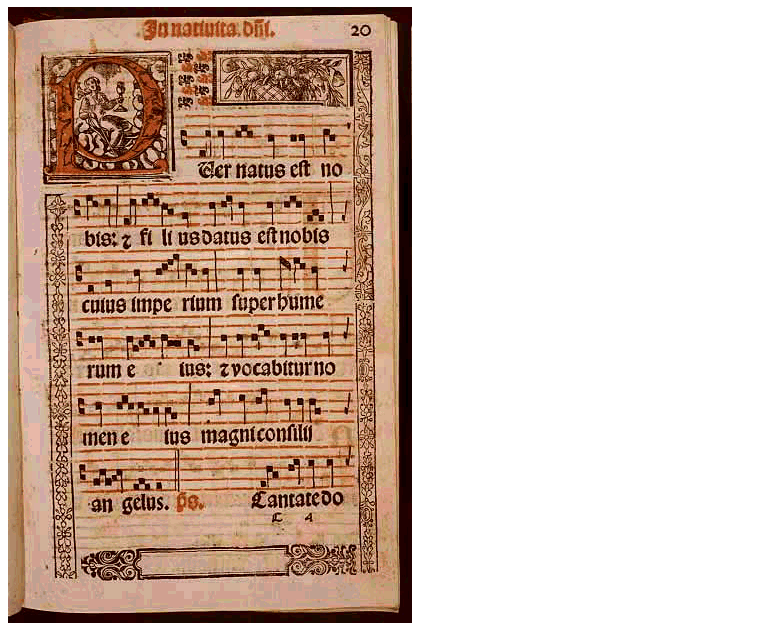 In nativita. dñi. 20
PUer natus est no
bis: ⁊ fi li us datus est nobis
cuius impe rium super hume
rum e ius: ⁊ vocabitur no
men e ius magni consilii
an gelus. p̃s. Cantate do
C A